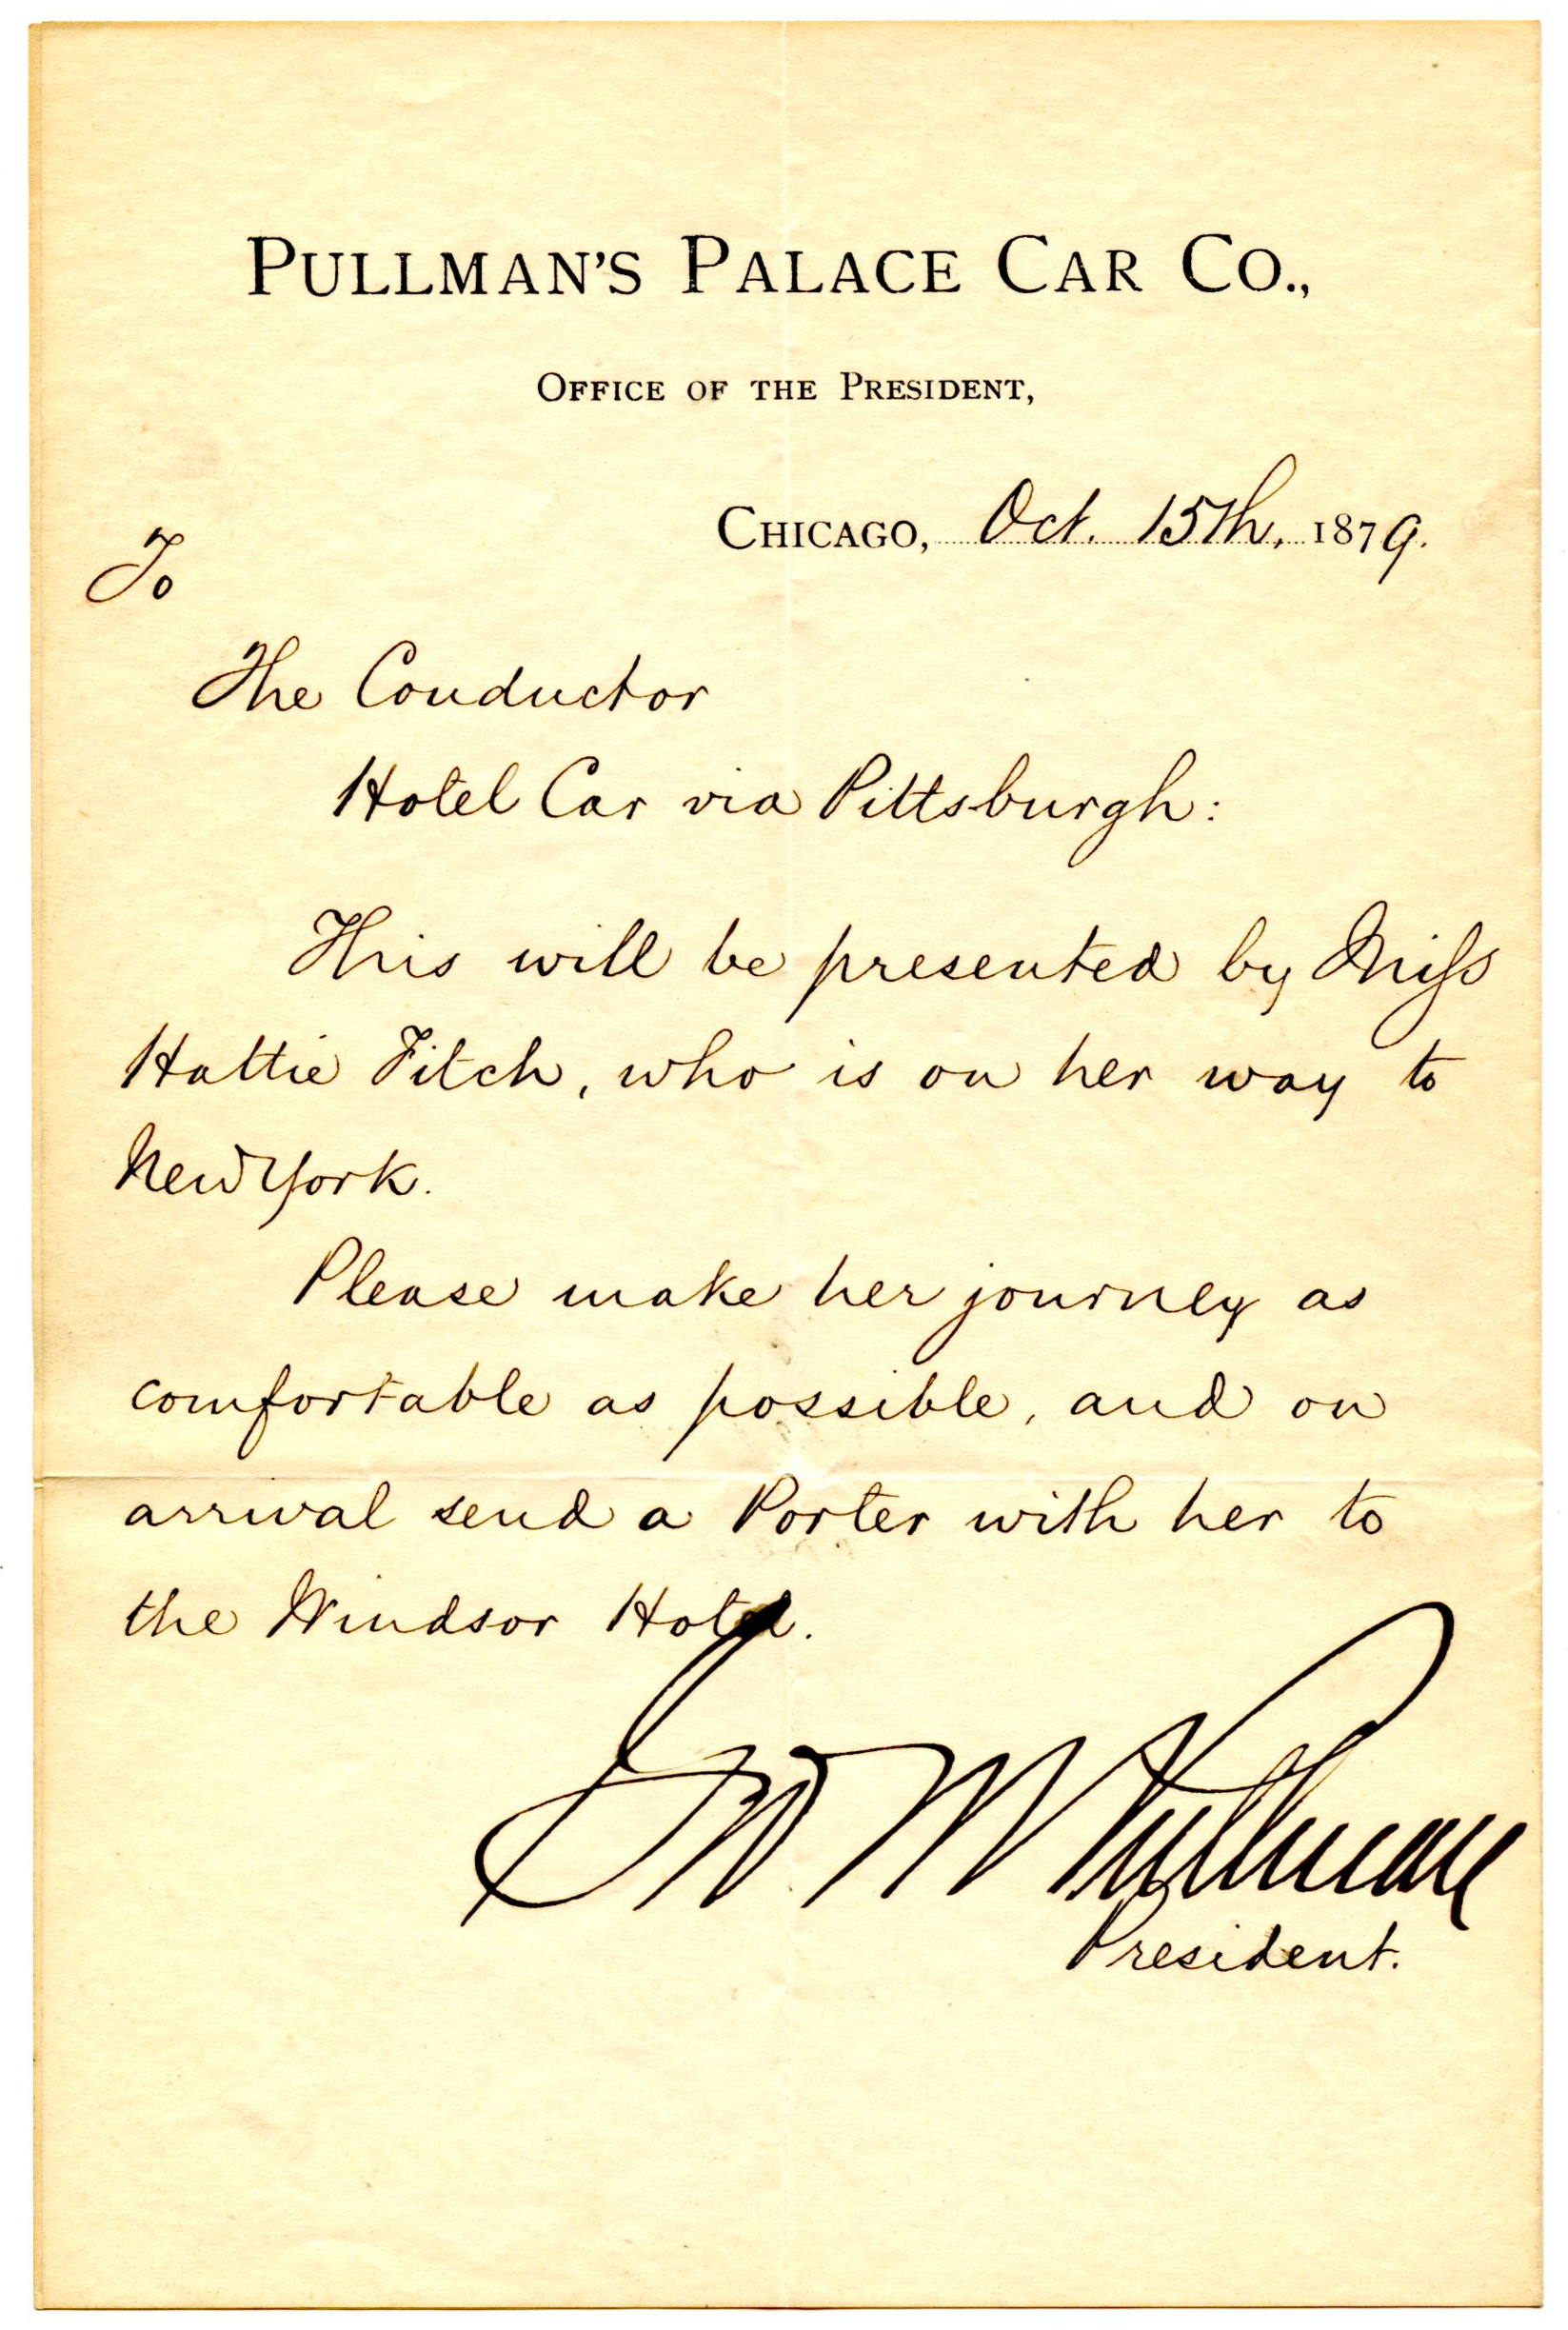 PULLMAN'S PALACE CAR CO.,
OFFICE OF THE PRESIDENT,
CHICAGO, Oct. 15th, 1879.
To
The Conductor
Hotel Car via Pittsburgh:
This will be presented by Miſs
Hattie Fitch, who is on her way to
New York.
Please make her journey as
comfortable as possible, and on
arrival send a Porter with her to
the Windsor Hotel.
Geo M Pullman
President.